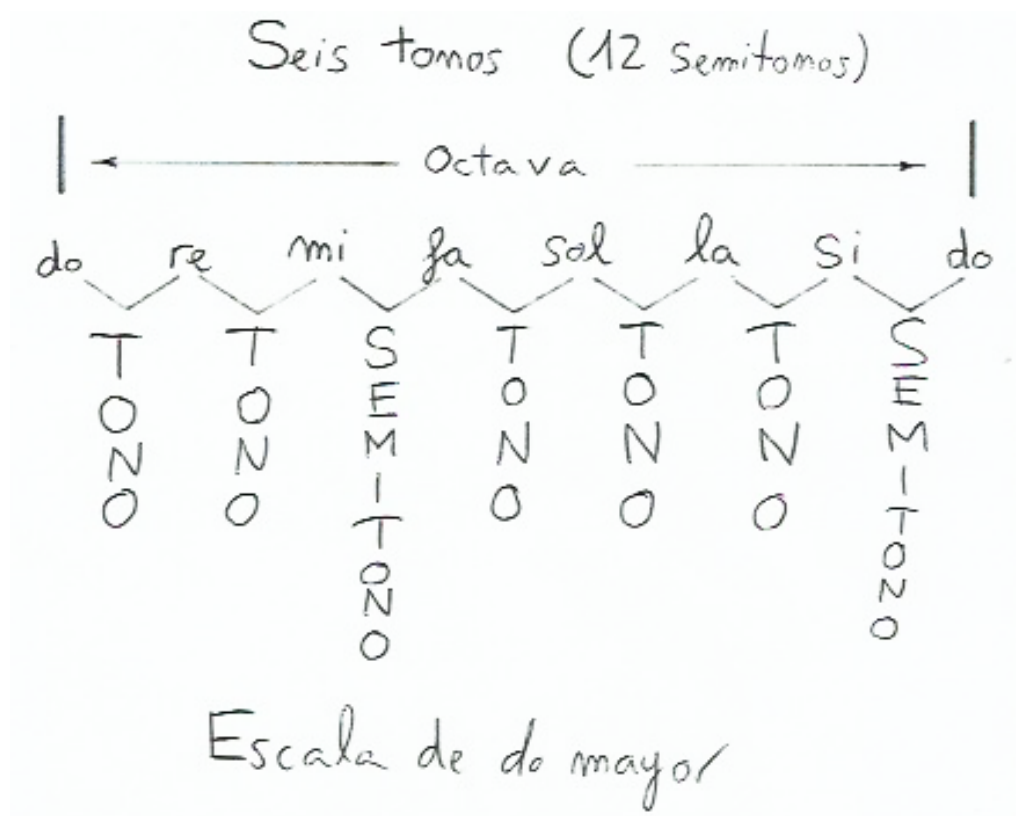 Seis tonos (12 semitonos)
Octava
do re mi fa sol la si do
TONO TONO SEMITONO TONO TONO TONO SEMITONO
Escala de do mayor